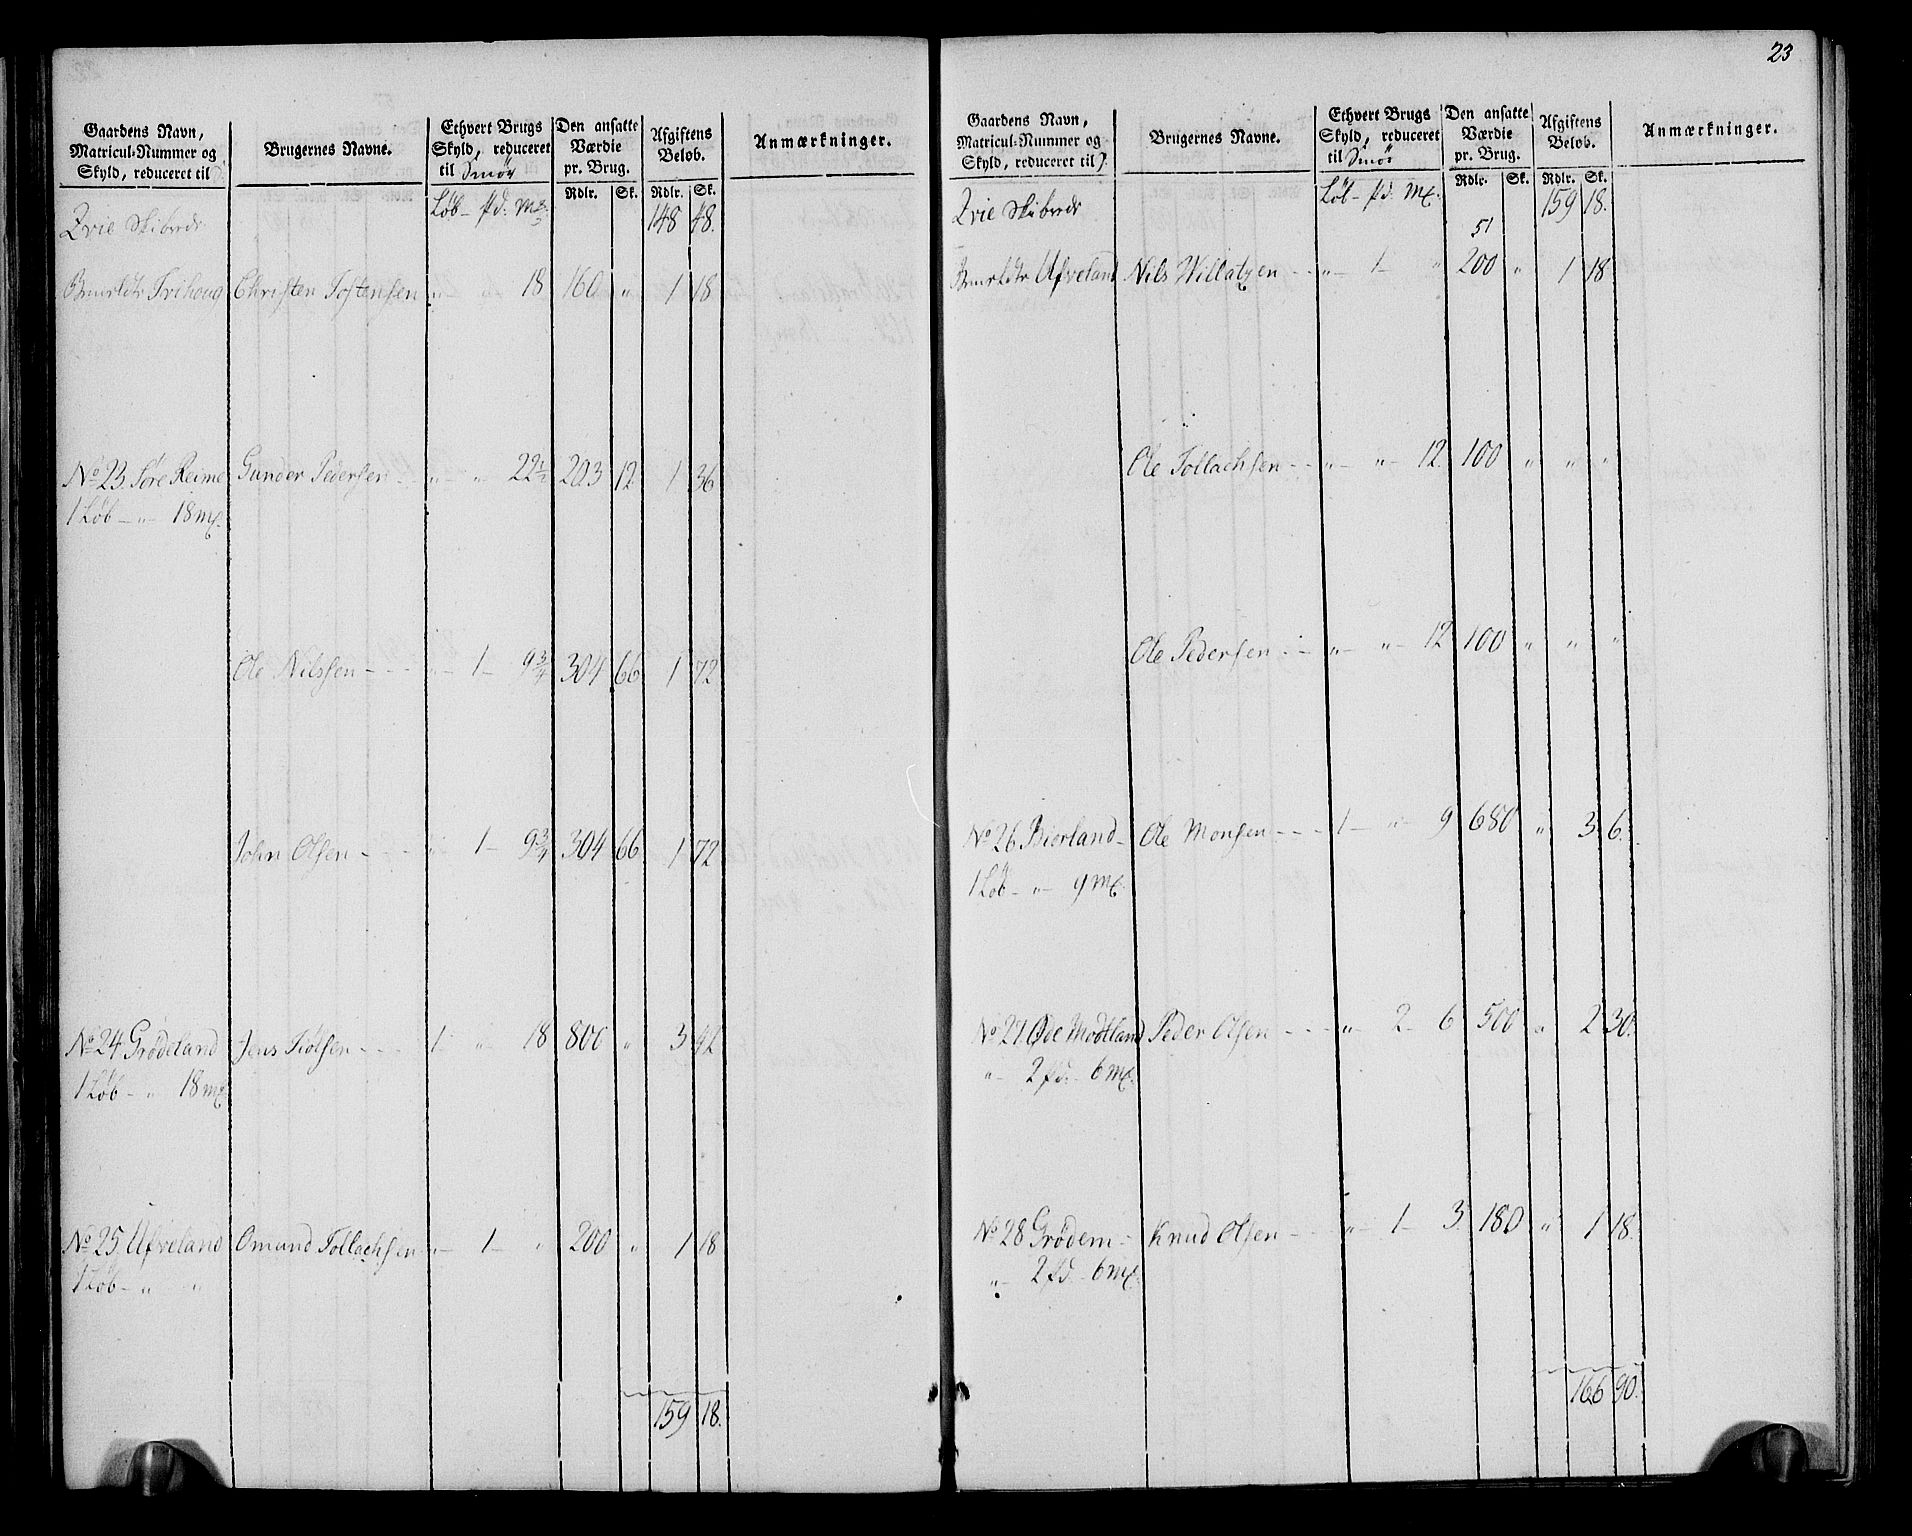 23
Gaardens Navn, Matricul-Nummer og Skyld, reduceret til
Brugernes Navne.
Ethvert Brugs Skyld, reduceret til Smör
Den ansatte Værdie pr. Brug.
Afgiftens Beløb.
Anmærkninger.
Rdlr. Sk. Rdlr. Sk.
Qvie Skibrede Løb – pd: mk: 148 48.
Christen Tostensen „ „ 18 160 „ 1 18
No 23. Søre Reime Gunder Pedersen „ „ 22 1/2 203 12 1 36
1 Løb – „ – 18 mk.
Ole Nilssen – – – „ 1 – 9 3/4 304 66 1 72
John Olsen – – – „ 1 – 9 3/4 304 66 1 72
No 24 Grødeland Jens Kiølsen – – – 1 – „ 18 800 „ 3 42
1 Løb – „ 18 mk
No 25. Ufveland Omund Tollachsen „ – 1 – „ 200 „ 1 18
1 Løb – „ „
159 18.
Gaardens Navn, Matricul-Nummer og Skyld, reduceret til
Brugernes Navne.
Ethvert Brugs Skyld, reduceret til Smör
Den ansatte Værdie pr. Brug.
Afgiftens Beløb.
Anmærkninger.
Rdlr. Sk. Rdlr. Sk.
Qvie Skibrede Løb – pd: mk. 159 18.
51
Ufveland Nils Willatzen – – „ – 1 – „ 200 „ 1 18.
Ole Tollachsen – – „ – „ – 12 100 „ „ „
Ole Pedersen – – „ – „ – 12 100 „ „ „
No 26 Bierland – Ole Monsen – – – 1 – „ – 9 680 „ 3 6.
1 Løb – „ – 9 mk.
No 27. Øde Modland Peder Olsen – – – „ – 2 – 6 500 „ 2 30.
„ – 2 pd. – 6 mk.
No 28 Grødem – Knud Olsen – – – „ – 1 – 3. 180 „ 1 18.
„ – 2 pd. – 6 mk.
166 90.